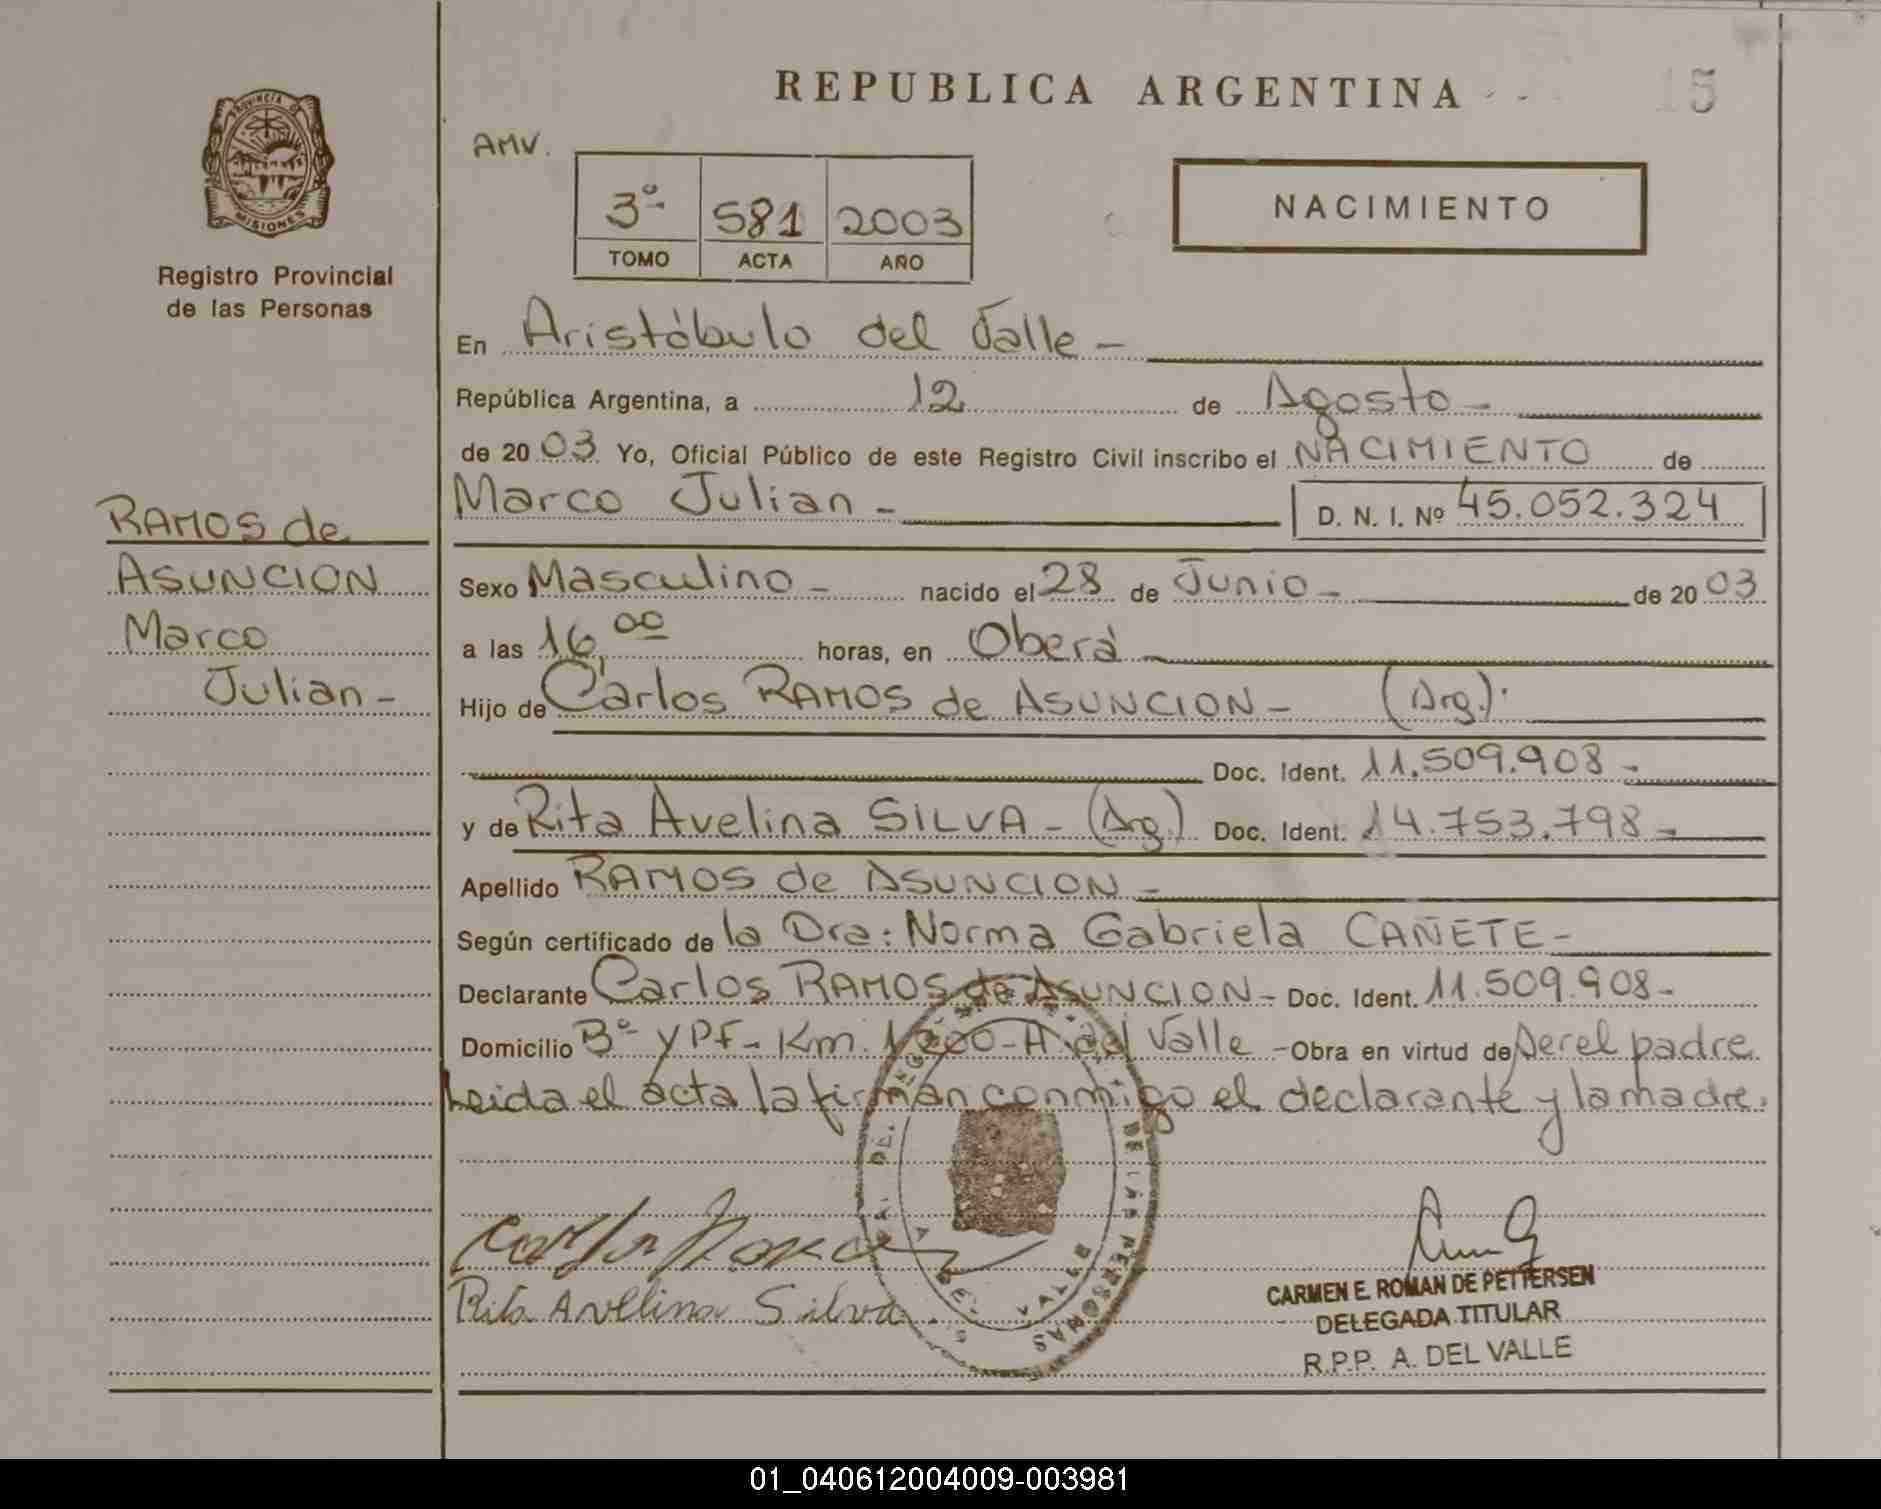 REPUBLICA ARGENTINA
15
PROVINCIA DE
MISIONES
Registro Provincial
de las Personas
AMV.
3º 581 2003
TOMO ACTA AÑO
NACIMIENTO
En Aristóbulo del Valle -
República Argentina, a 12 de Agosto -
de 2003 Yo, Oficial Público de este Registro Civil inscribo el NACIMIENTO de
Marco Julian - D. N. I. Nº 45.052.324
RAMOS de
ASUNCION
Marco
Julian -
Sexo Masculino - nacido el 28 de Junio - de 2003
a las 16,00 horas, en Oberá -
Hijo de Carlos RAMOS de ASUNCION - (Arg.).
Doc. Ident. 11.509.908 -
y de Rita Avelina SILVA - (Arg.) Doc. Ident. 14.753.798 -
Apellido RAMOS de ASUNCION -
Según certificado de la Dra: Norma Gabriela CAÑETE -
Declarante Carlos RAMOS de ASUNCION - Doc. Ident. 11.509.908 -
Domicilio Bº YPF - Km. 1000 - A. del Valle - Obra en virtud de ser el padre.
Leida el acta la firman conmigo el declarante y la madre.
DE LAS PERSONAS
DEL VALLE
Rita Avelina Silva.
CARMEN E. ROMAN DE PETTERSEN
DELEGADA TITULAR
R.P.P. A. DEL VALLE
01_040612004009-003981